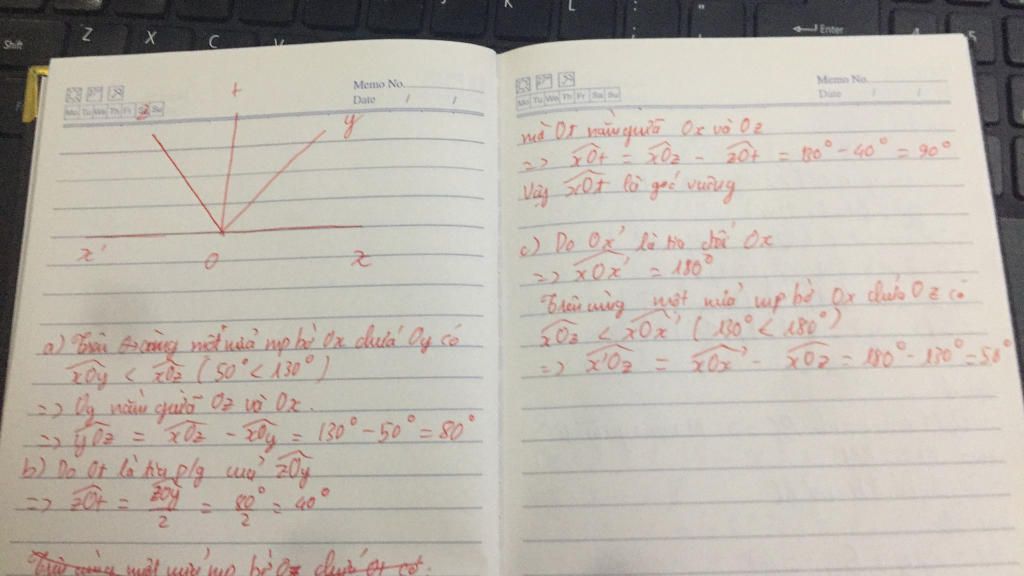 Shift
Z
X
C
V
K
L
Enter
Memo No.
Date / /
Mo Tu We Th Fr Sa Su
t
y
x'
O
x
a) Trên cùng một nửa mp bờ Ox chứa Oy có
xOy < xOz (50° < 130°)
=> Oy nằm giữa Oz và Ox.
=> yOz = xOz - xOy = 130° - 50° = 80°
b) Do Ot là tia p/g của zOy
=> zOt = zOy/2 = 80°/2 = 40°
Trên cùng một nửa mp bờ Oz chứa Ot có:
Memo No.
Date / /
Mo Tu We Th Fr Sa Su
mà Ot nằm giữa Ox và Oz
=> xOt = xOz - zOt = 130° - 40° = 90°
Vậy xOt là góc vuông
c) Do Ox' là tia đối Ox
=> xOx' = 180°
Trên cùng một nửa mp bờ Ox chứa Oz có
xOz < xOx' (130° < 180°)
=> x'Oz = xOx' - xOz = 180° - 130° = 50°